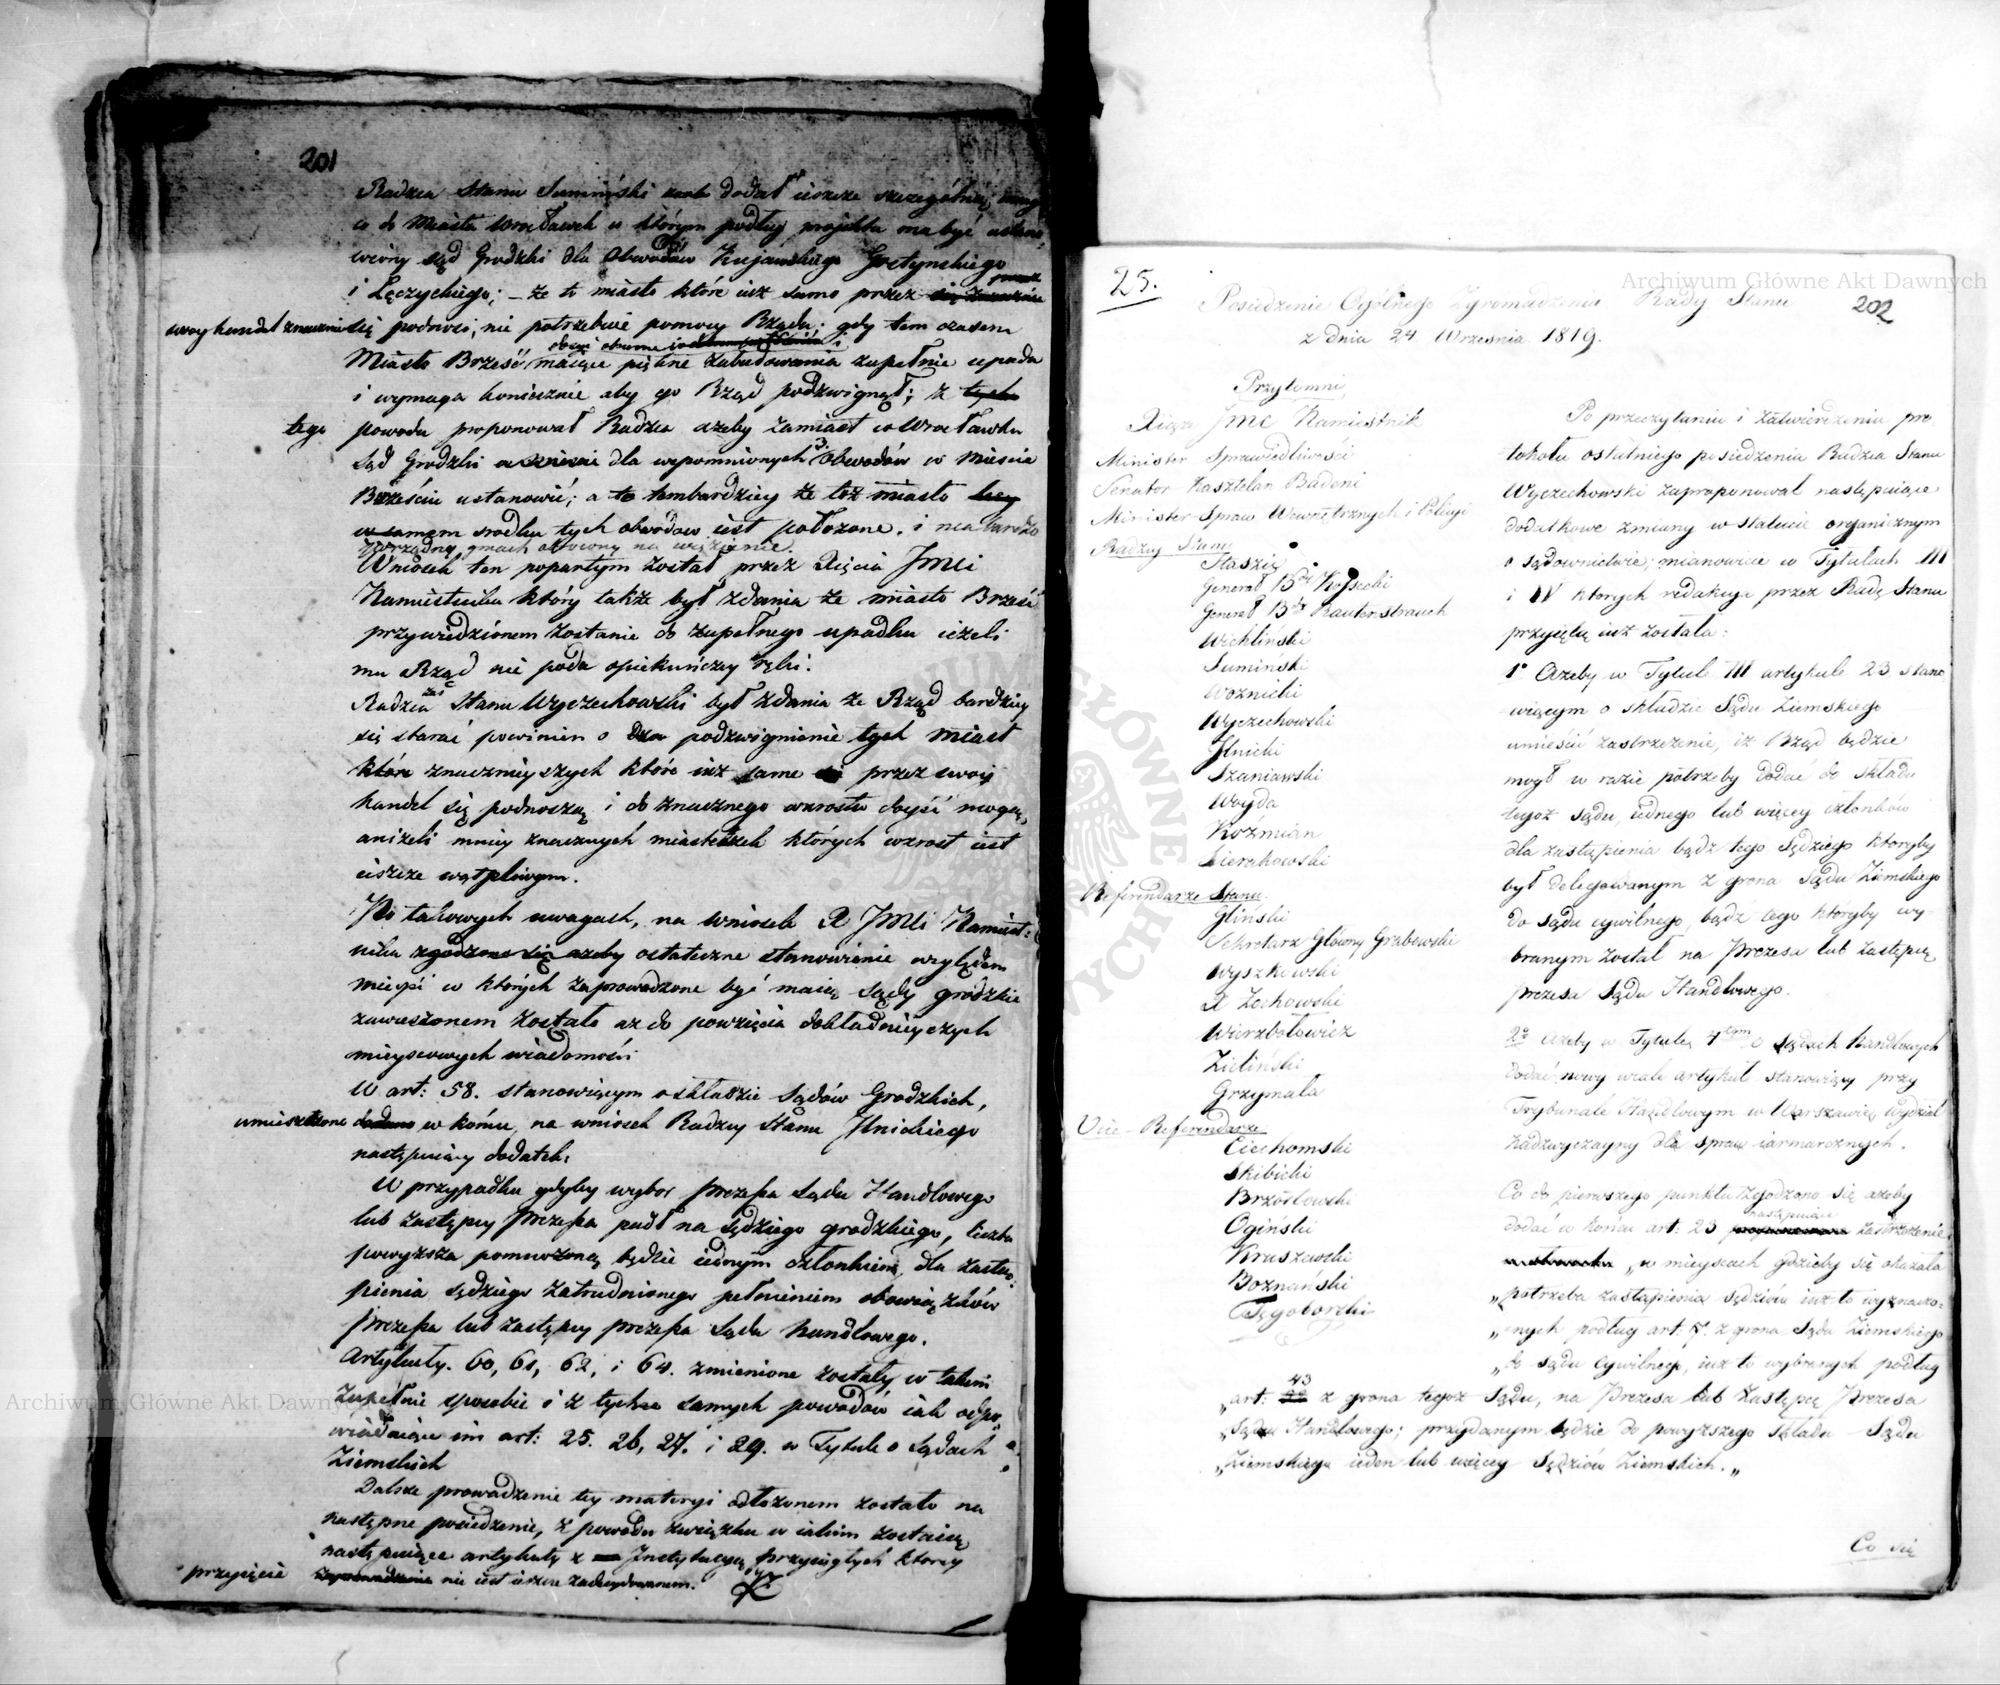 201
Radzca Stanu Sumiński dodał ieszcze szczególnieyszą uwagę
co do Miasta Wrocławek w którym podług projektu ma być ustano
wiony sąd Grodzki dla Obwodów Kujawskiego Gostynskiego
i Łęczyckiego; – że to miasto które iuż samo przez
swoy handel znacznie się podnosi, nie potrzebuie pomocy Rządu; gdy tem czasem
Miasto Brześć maiące piękne zabudowania zupełnie upada
i wymaga koniecznie aby go Rząd podzwignął; z tych
tego powodu proponował Radzca azeby zamiast w Wrocławku
Sąd Grodzki dla wspomnionych 3 Obwodów w Miescie
Brześciu ustanowić; a to tembardziey że toż miasto leży
w samem srodku tych obwodow iest położone. i ma bardzo
porządny gmach obrócony na więzienie.
Wniosek ten popartym został przez Xięcia JMci
Namiestnika który także był zdania że miasto Brześć
przywiedzionem zostanie do zupełnego upadku ieżeli
mu Rząd nie poda opiekuńczey ręki.
Radzca zaś Stanu Wyczechowski był zdania że Rząd bardziey
się starać powinien o podzwignienie tych miast
które znacznieyszych które iuż same przez swoy
handel się podnoszą i do znacznego wzrostu doyść mogą,
aniżeli mniey znacznych miasteczek których wzrost iest
ieszcze wątpliwym.
Po takowych uwagach, na wniosek X JMci Namiest:
nika zgodzono się azeby ostateczne stanowienie względem
mieysc w których zaprowadzone być maią sądy grodzkie
zawieszonem zostało aż do powzięcia dokładnieyszych
mieyscowych wiadomości
W art: 58. stanowiącym o składzie Sądów Grodzkich,
umieszczone dodano w końcu, na wniosek Radzcy Stanu Ilnickiego
następuiący dodatek:
W przypadku gdyby wybor Prezesa Sądu Handlowego
lub zastępcy Prezesa padł na sędziego grodzkiego, liczba
powyższa pomnożoną będzie iednym członkiem, dla zastą:
pienia sędziego zatrudnionego pełnieniem obowiązków
Prezesa lub zastępcy prezesa Sądu handlowego.
Artykuły. 60, 61, 62, i 64. zmienione zostały w takim
zupełnie sposobie i z tychże samych powodów iak odpo:
wiadaiące im art: 25. 26, 27. i 29. w Tytule o Sądach
Ziemskich
Dalsze prowadzenie tey materyi odłożonem zostało na
następne posiedzenie, z powodu związku w iakim zostaią
następuiące artykuły z Instytucyą przysięgłych ktorey
przyięcie zaprowadzenie nie iest ieszcze zadecydowanem.
25.
202
Posiedzenie Ogólnego Zgromadzenia Rady Stanu
z dnia 24 Września 1819.
Przytomni
Xiąże JMC Namiestnik
Minister Sprawiedliwości
Senator Kasztelan Badeni
Minister Spraw Wewnętrznych i Policyi
Radzcy Stanu
Staszic
Generał Bdy Kossecki
Generał Bdy Rautenstrauch
Wichliński
Sumiński
Woźnicki
Wyczechowski
Ilnicki
Szaniawski
Woyda
Koźmian
Sierakowski
Referendarze Stanu
Gliński
Sekretarz Główny Grabowski
Wyszkowski
X Zochowski
Wierzbołowicz
Zieliński
Grzymała
Vice-Referendarze
Ciechomski
Skibicki
Brzostowski
Ogiński
Kruszewski
Boznański
Tęgoborski
Po przeczytaniu i zatwierdzeniu pro
tokołu ostatniego posiedzenia Radzca Stanu
Wyczechowski zaproponował następuiące
dodatkowe zmiany w statucie organicznym
o sądownictwie, mianowicie w Tytułach III
i IV których redakcya przez Radę Stanu
przyiętą iuż została:
1° Azeby w Tytule III artykule 23 stano
wiącym o składzie Sądu Ziemskiego
umieścić zastrzeżenie, iż Rząd będzie
mogł w razie potrzeby dodać do składu
tegoż sądu, iednego lub więcey członków
dla zastąpienia bądź tego sędziego któryby
był delegowanym z grona Sądu Ziemskiego
do sądu cywilnego, bądź tego któryby wy
branym został na Prezesa lub zastępcę
prezesa Sądu Handlowego.
2° Azeby w Tytule 4tym o sądach handlowych
dodać nowy wcale artykuł stanowiący przy
Trybunale Handlowym w Warszawie, wydział
nadzwyczayny dla spraw iarmarcznych.
Co do pierwszego punktu zgodzono się azeby
dodać w końcu art: 23 następuiące zastrzeżenie
„w mieyscach gdzieby się okazała
„potrzeba zastąpienia sędziów iuż to wyznaczo:
„nych podług art. 7. z grona Sądu Ziemskiego
„do sądu cywilnego, iuż to wybranych podług
„art: 43 z grona tegoż Sądu, na Prezesa lub Zastępcę Prezesa
„Sądu Handlowego; przydanym będzie do powyższego składu Sądu
„Ziemskiego ieden lub więcey Sędziów Ziemskich.„
Co się
Archiwum Główne Akt Dawnych
Archiwum Główne Akt Dawnych